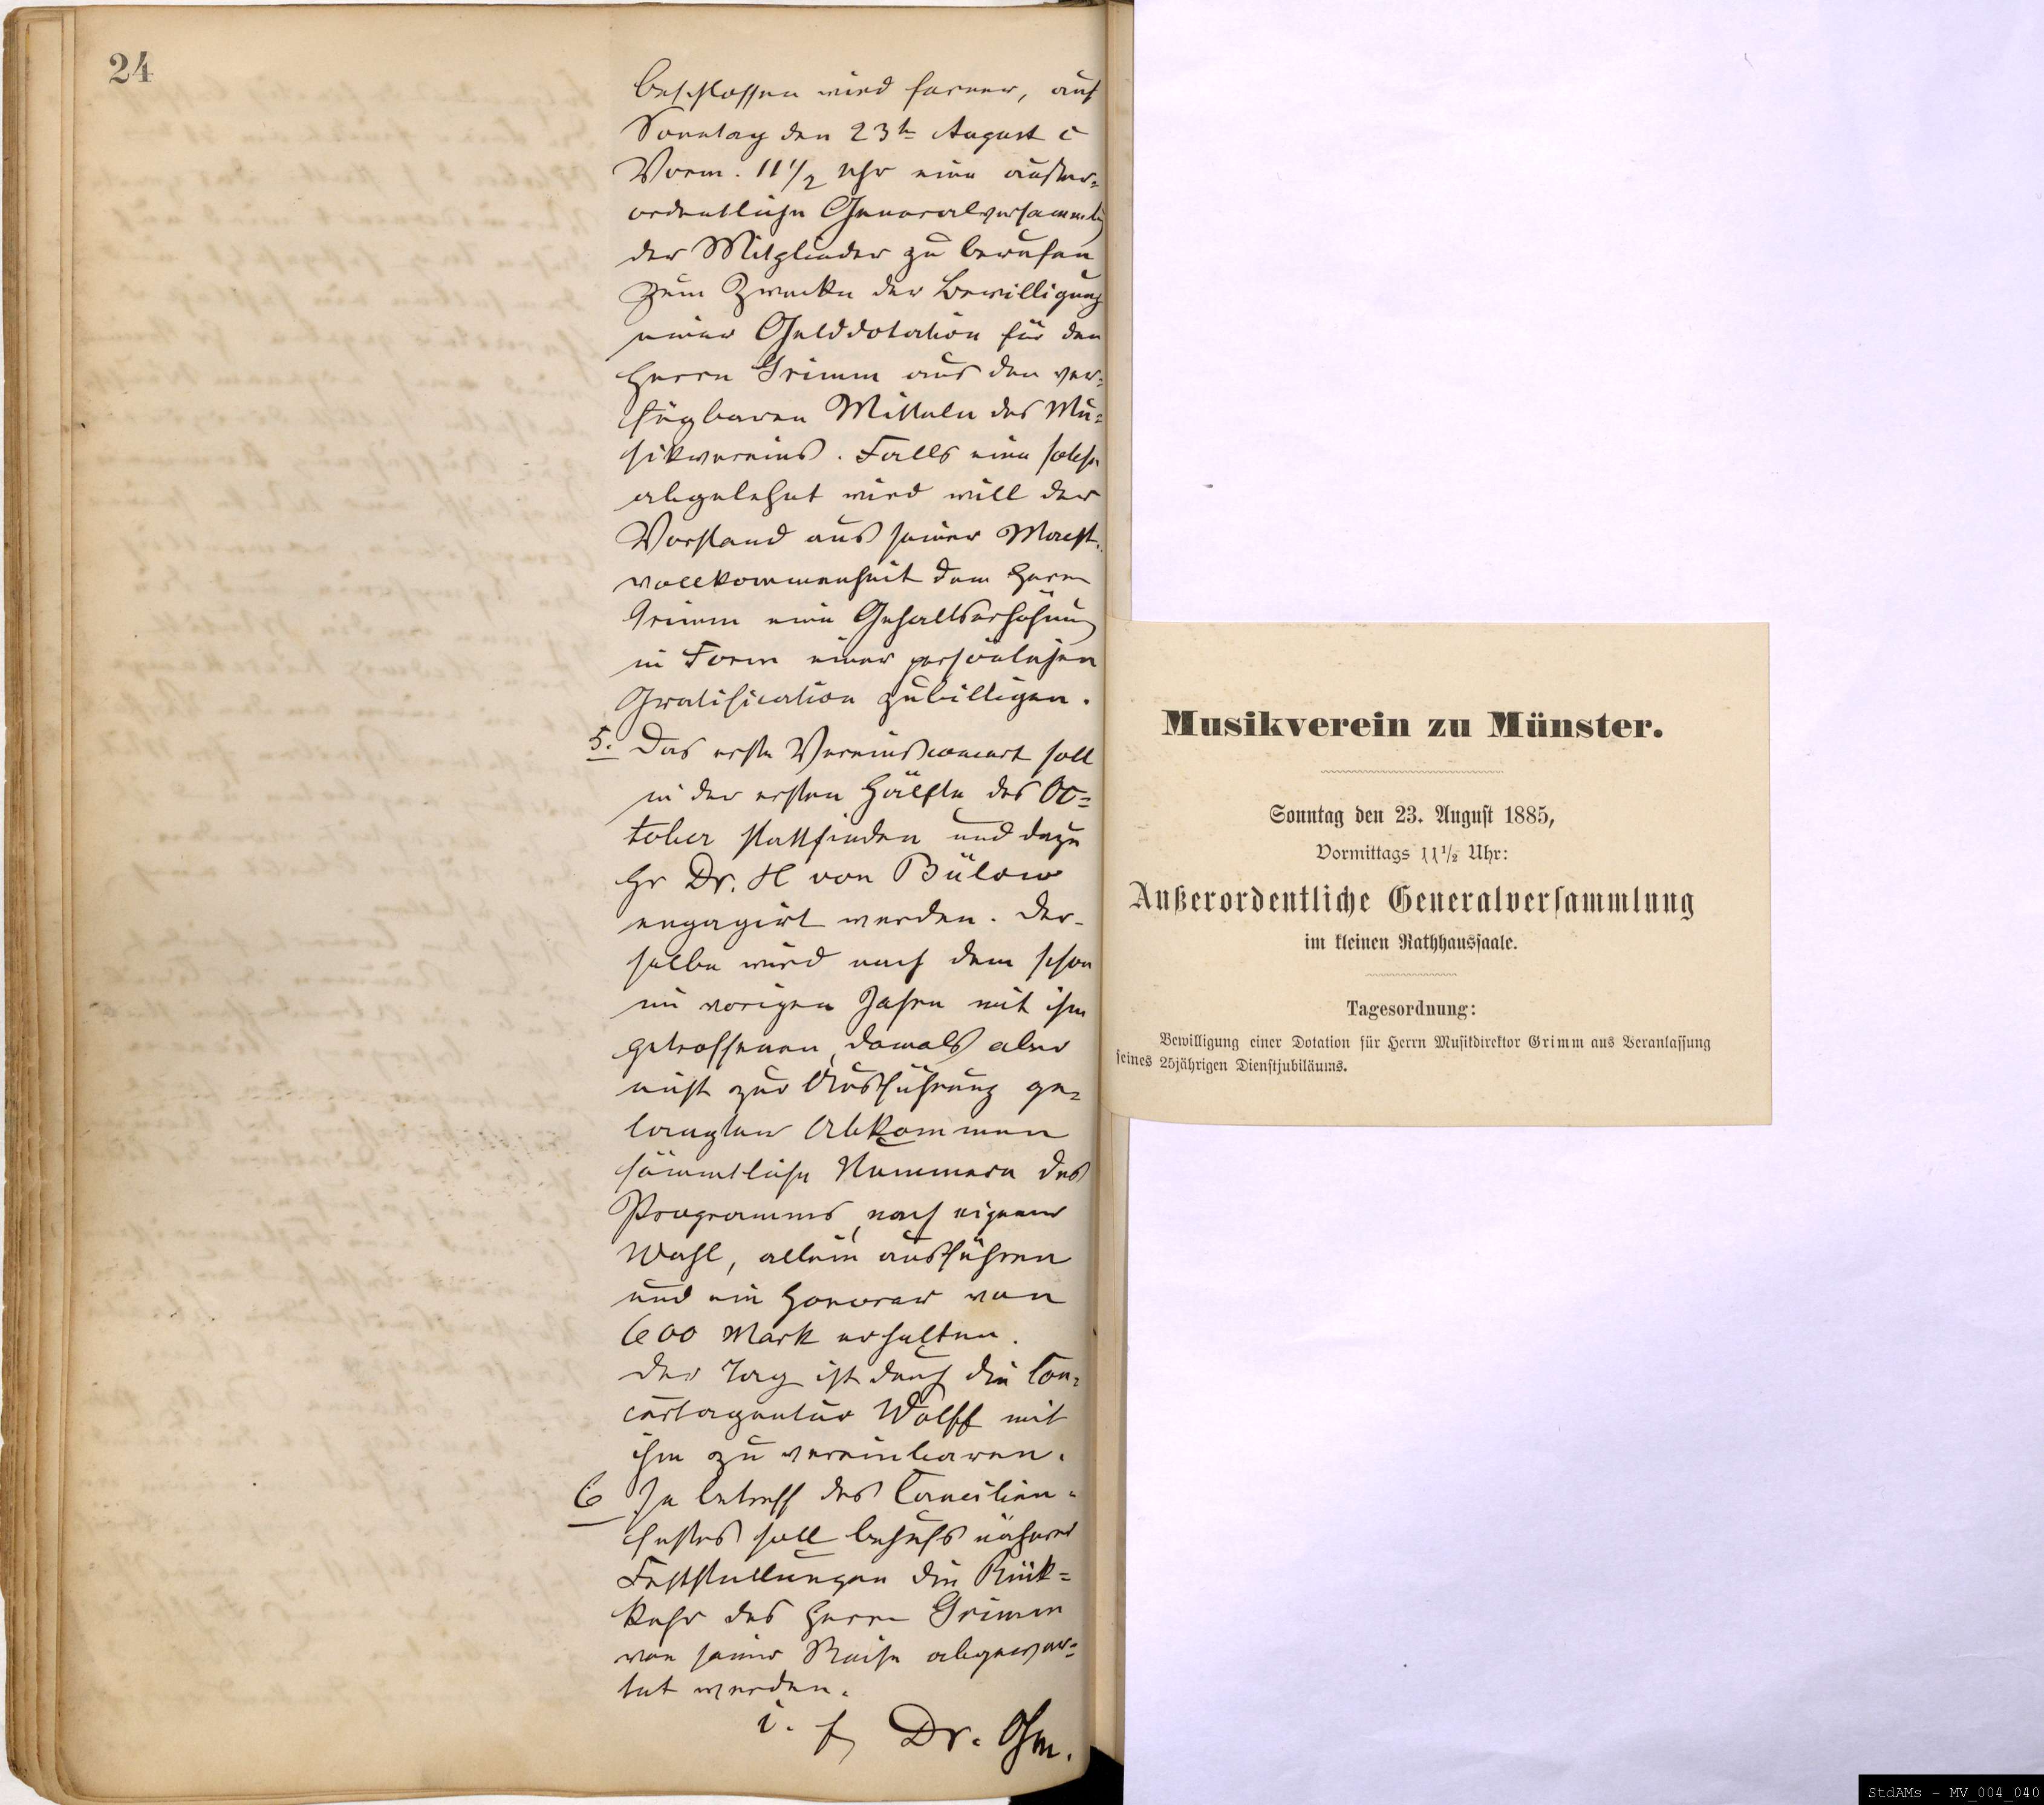 24
beschlossen wird ferner, auf
Sonntag den 23t August c
Vorm. 11 1/2 Uhr eine außer-
ordentliche Generalversammlg
der Mitglieder zu berufen
zum Zwecke der Bewilligung
einer Gelddotation für den
Herrn Grimm aus den ver-
fügbaren Mitteln des Mu-
sikvereins. Falls eine solche
abgelehnt wird will der
Vorstand aus seiner Macht-
vollkommenheit dem Herrn
Grimm eine Gehaltserhöhung
in Form einer persönlichen
Gratification zubilligen.
5. Das erste Vereinsconcert soll
in der ersten Hälfte des Oc-
tober stattfinden und dazu
Hr Dr. H von Bülow
engagirt werden. Der-
selbe wird nach dem schon
im vorigen Jahre mit ihm
getroffenen, damals aber
nicht zur Ausführung ge-
langten Abkommen
sämmtliche Nummern des
Programms, nach eigener
Wahl, allein ausführen
und ein Honorar von
600 Mark erhalten.
Der Tag ist durch die Con-
certagentur Wolff mit
ihm zu vereinbaren.
6 In betreff des Caecilien-
festes soll behufs näherer
Feststellungen die Rück-
kehr des Herrn Grimm
von seiner Reise abgewar-
tet werden.
Dr. Ohm.
Musikverein zu Münster.
Sonntag den 23. August 1885,
Vormittags 11 1/2 Uhr:
Außerordentliche Generalversammlung
im kleinen Rathhaussaale.
Tagesordnung:
Bewilligung einer Dotation für Herrn Musikdirektor Grimm aus Veranlassung
seines 25jährigen Dienstjubiläums.
StdAMs - MV_004_040